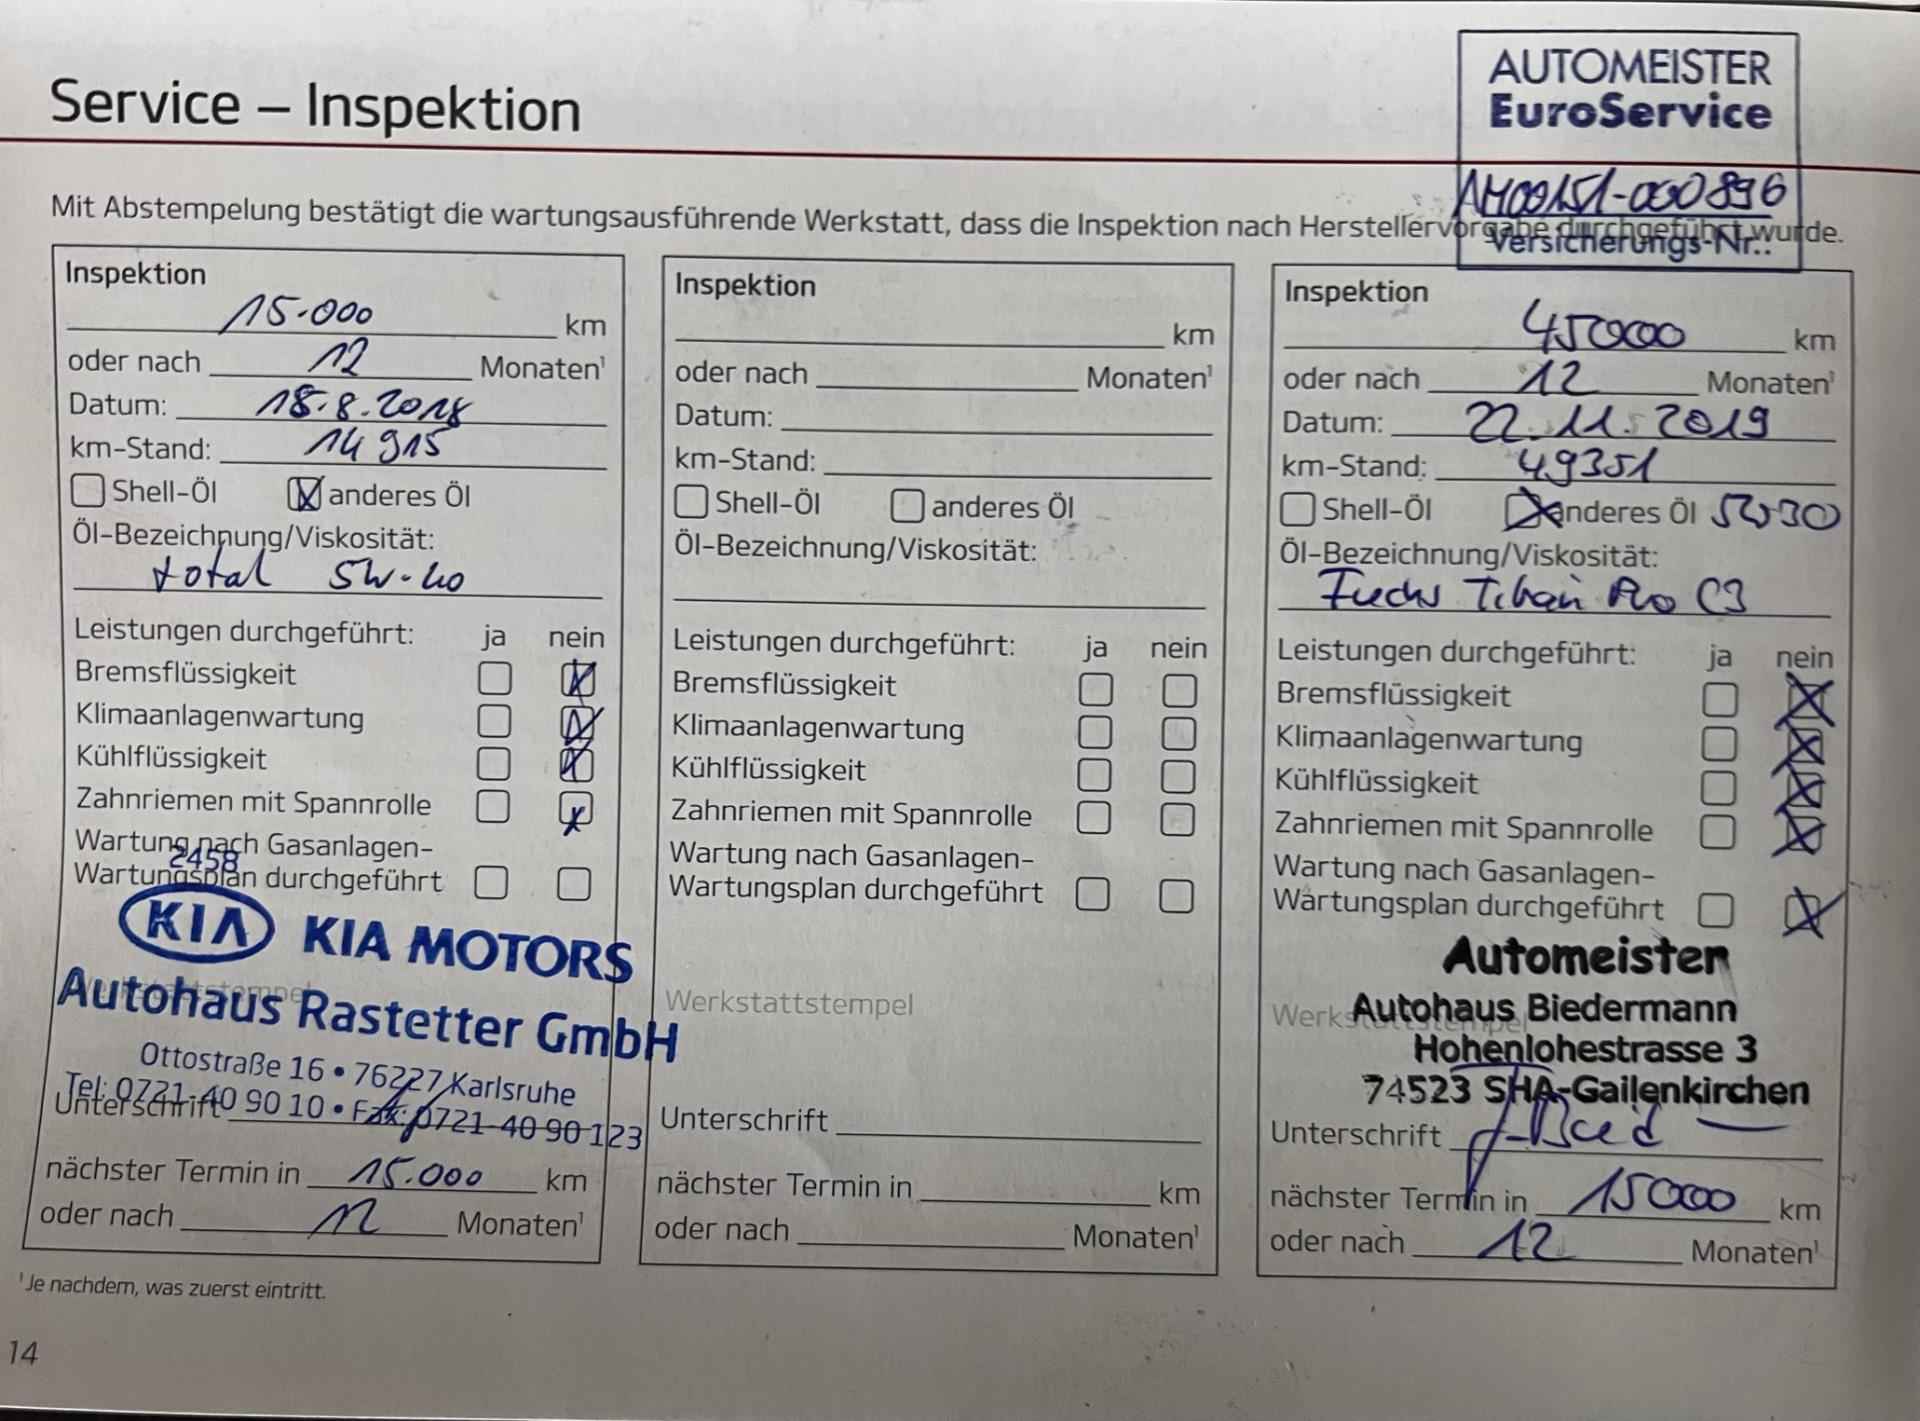 AUTOMEISTER
EuroService
AH00151-000896
Versicherungs-Nr.:
Service – Inspektion
Mit Abstempelung bestätigt die wartungsausführende Werkstatt, dass die Inspektion nach Herstellervorgabe durchgeführt wurde.
Inspektion
15.000 km
oder nach 12 Monaten¹
Datum: 18.8.2018
km-Stand: 14 915
Shell-Öl anderes Öl
Öl-Bezeichnung/Viskosität:
total 5W-40
Leistungen durchgeführt: ja nein
Bremsflüssigkeit
Klimaanlagenwartung
Kühlflüssigkeit
Zahnriemen mit Spannrolle
Wartung nach Gasanlagen-
Wartungsplan durchgeführt
2458
KIA KIA MOTORS
Werkstattstempel
Autohaus Rastetter GmbH
Ottostraße 16 • 76227 Karlsruhe
Tel: 0721-40 90 10 • Fax: 0721-40 90 123
Unterschrift
nächster Termin in 15.000 km
oder nach 12 Monaten¹
Inspektion
km
oder nach Monaten¹
Datum:
km-Stand:
Shell-Öl anderes Öl
Öl-Bezeichnung/Viskosität:
Leistungen durchgeführt: ja nein
Bremsflüssigkeit
Klimaanlagenwartung
Kühlflüssigkeit
Zahnriemen mit Spannrolle
Wartung nach Gasanlagen-
Wartungsplan durchgeführt
Werkstattstempel
Unterschrift
nächster Termin in km
oder nach Monaten¹
Inspektion
45000 km
oder nach 12 Monaten¹
Datum: 22.11.2019
km-Stand: 49351
Shell-Öl anderes Öl 5W30
Öl-Bezeichnung/Viskosität:
Fuchs Titan Pro C3
Leistungen durchgeführt: ja nein
Bremsflüssigkeit
Klimaanlagenwartung
Kühlflüssigkeit
Zahnriemen mit Spannrolle
Wartung nach Gasanlagen-
Wartungsplan durchgeführt
Automeister
Werkstattstempel
Autohaus Biedermann
Hohenlohestrasse 3
74523 SHA-Gailenkirchen
Unterschrift
nächster Termin in 15000 km
oder nach 12 Monaten¹
¹Je nachdem, was zuerst eintritt.
14